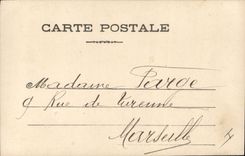 CARTE POSTALE
Madame Farge
9 Rue de Turenne
Marseille